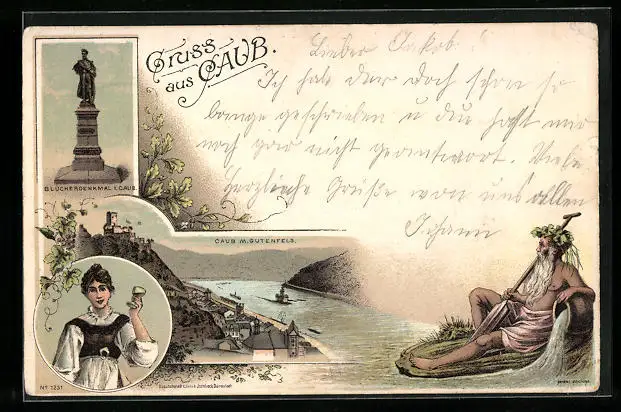 Gruss
aus CAUB.
Lieber Jakob!
Ich hab dir doch schon so
lange geschrieben u du hast mir
noch gar nicht geantwortet. Viele
Herzliche Grüße von uns allen
BLÜCHERDENKMAL I. CAUB.
CAUB M. GUTENFELS.
No 1231